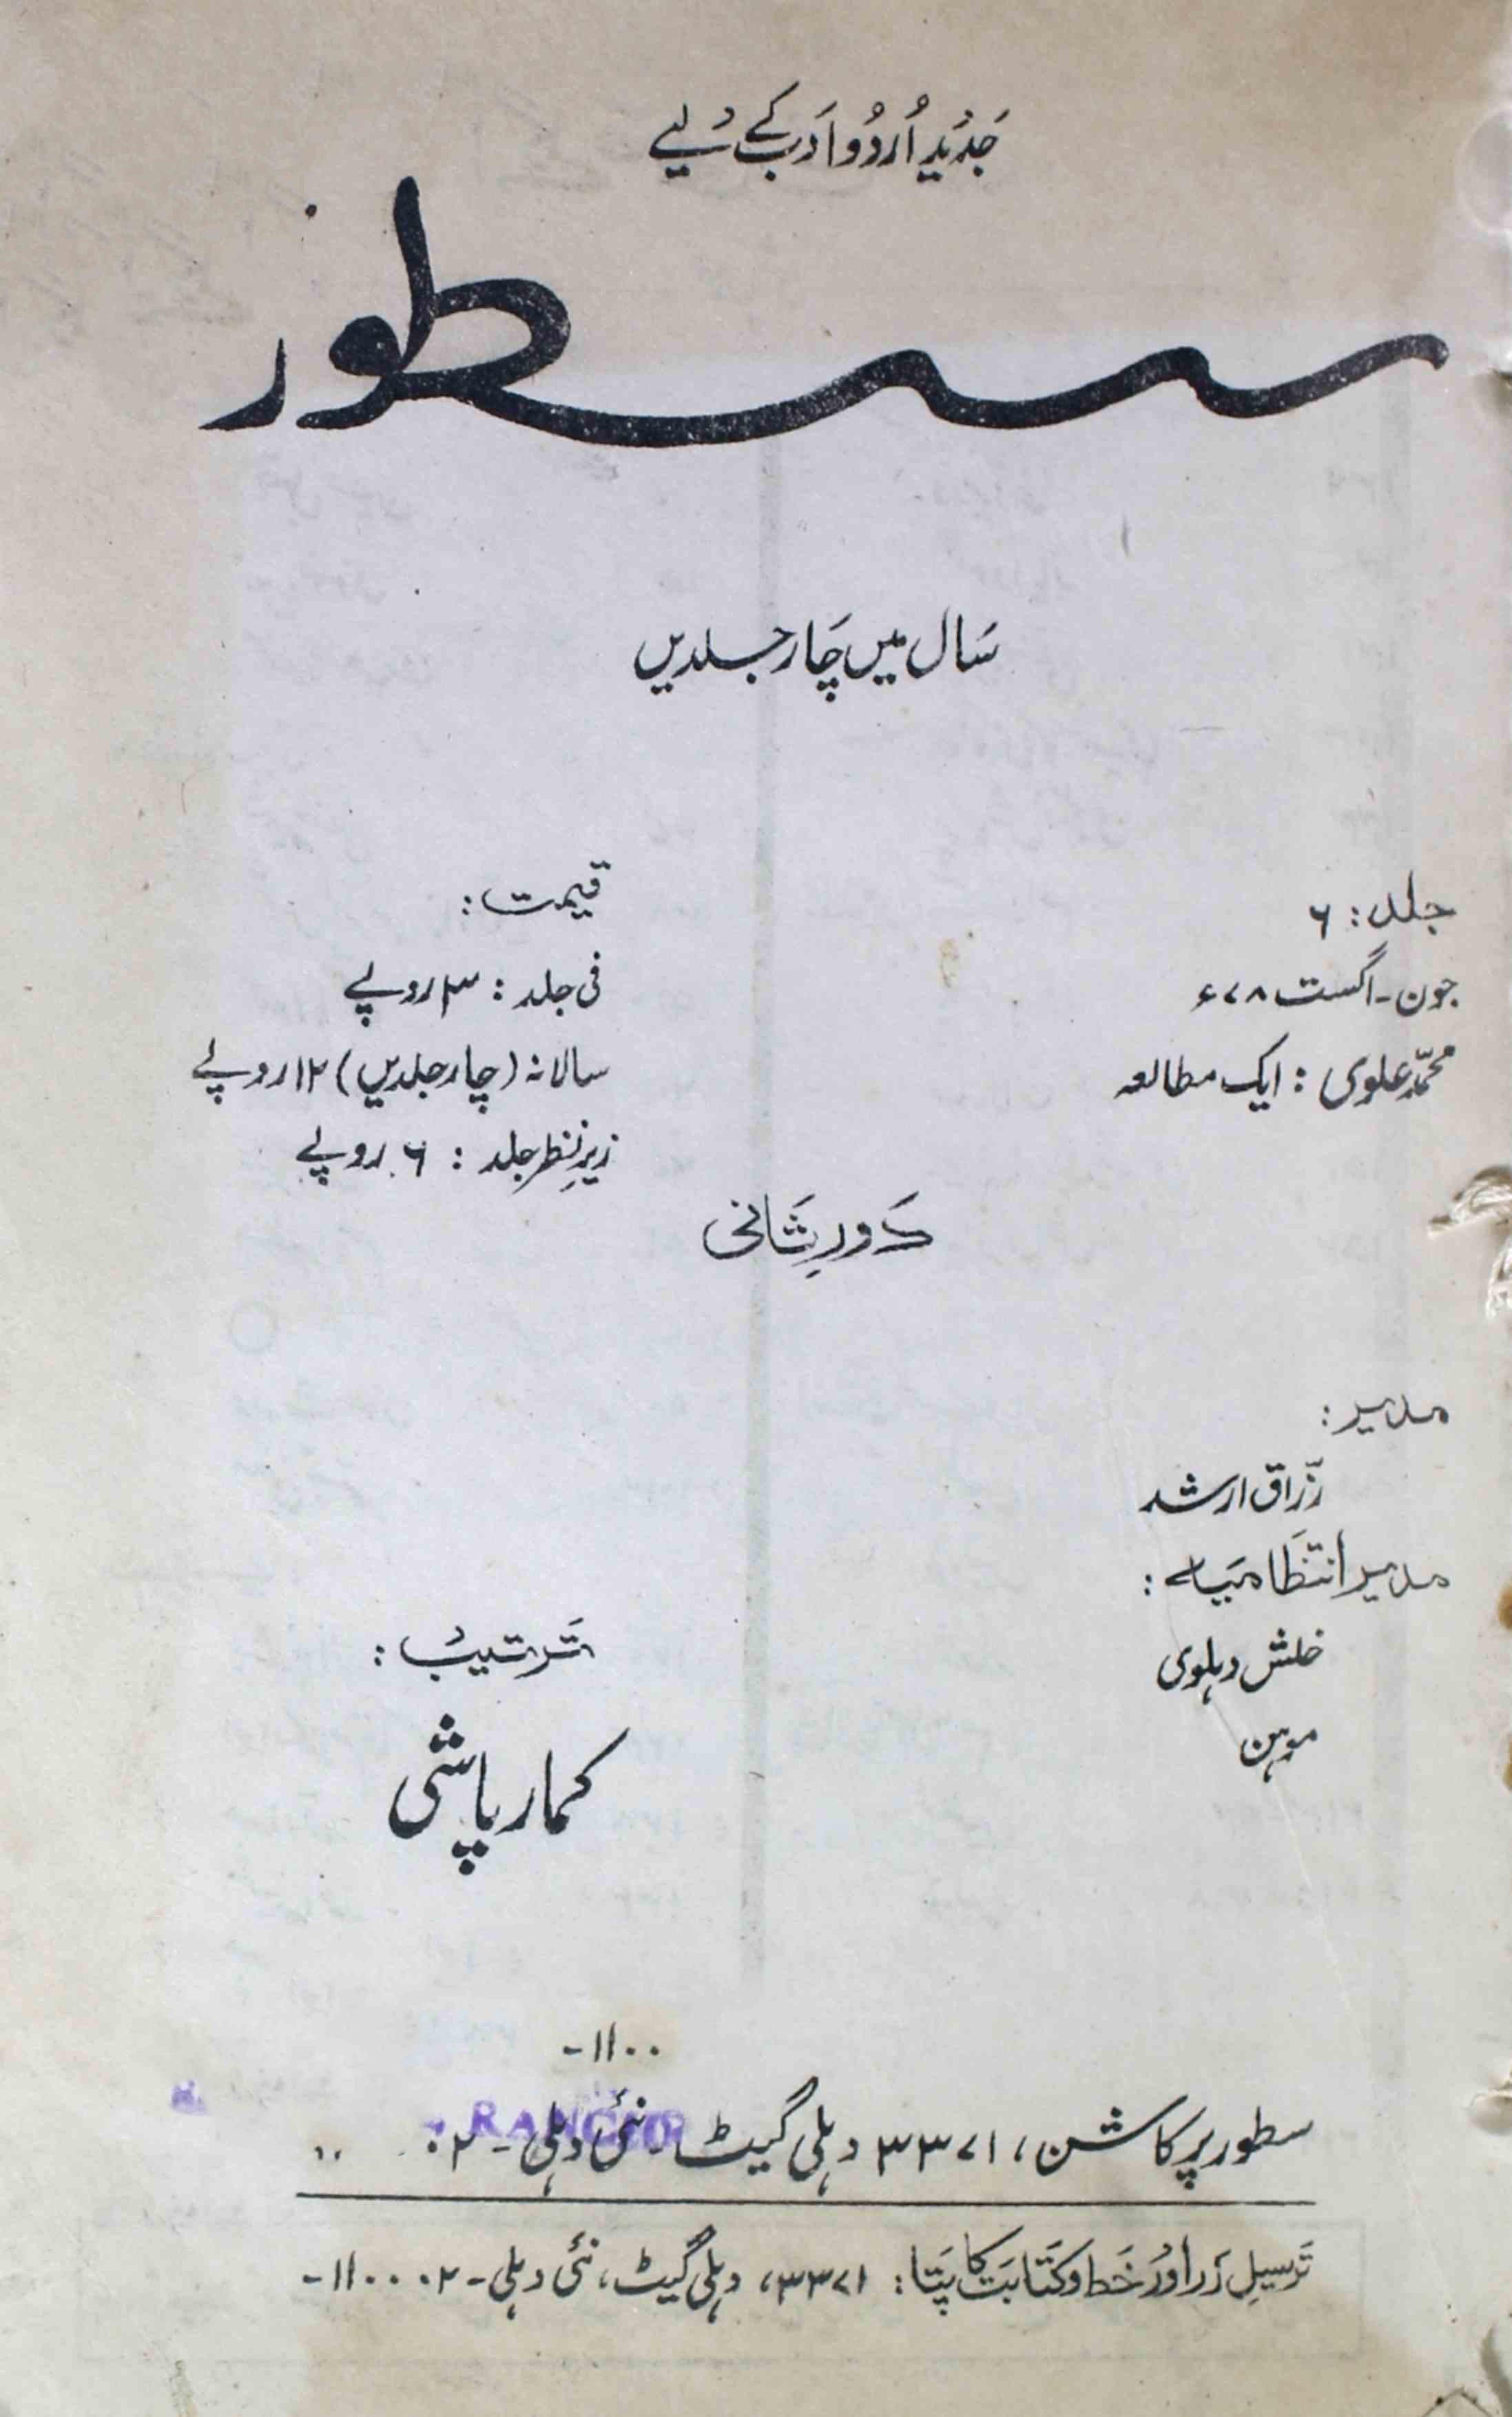 جدید اُردو ادب کے لیے
سطور
سال میں چار جلدیں
جلد: ۶
جون - اگست ۷۸ء
محمّد علوی: ایک مطالعہ
قیمت:
فی جلد: ۳ روپے
سالانہ (چار جلدیں) ۱۲ روپے
زیرِ نظر جلد: ۶ روپے
دورِ ثانی
مدیر:
رزّاق ارشد
مدیر انتظامیہ:
خلش دہلوی
موہن
ترتیب:
کمار پاشی
۱۱۰۰-
سطور پرکاشن، ۳۳۷۱ دہلی گیٹ، نئی دہلی - ۰۲
ترسیلِ زر اور خط و کتابت کا پتا: ۳۳۷۱، دہلی گیٹ، نئی دہلی - ۱۱۰۰۰۲-